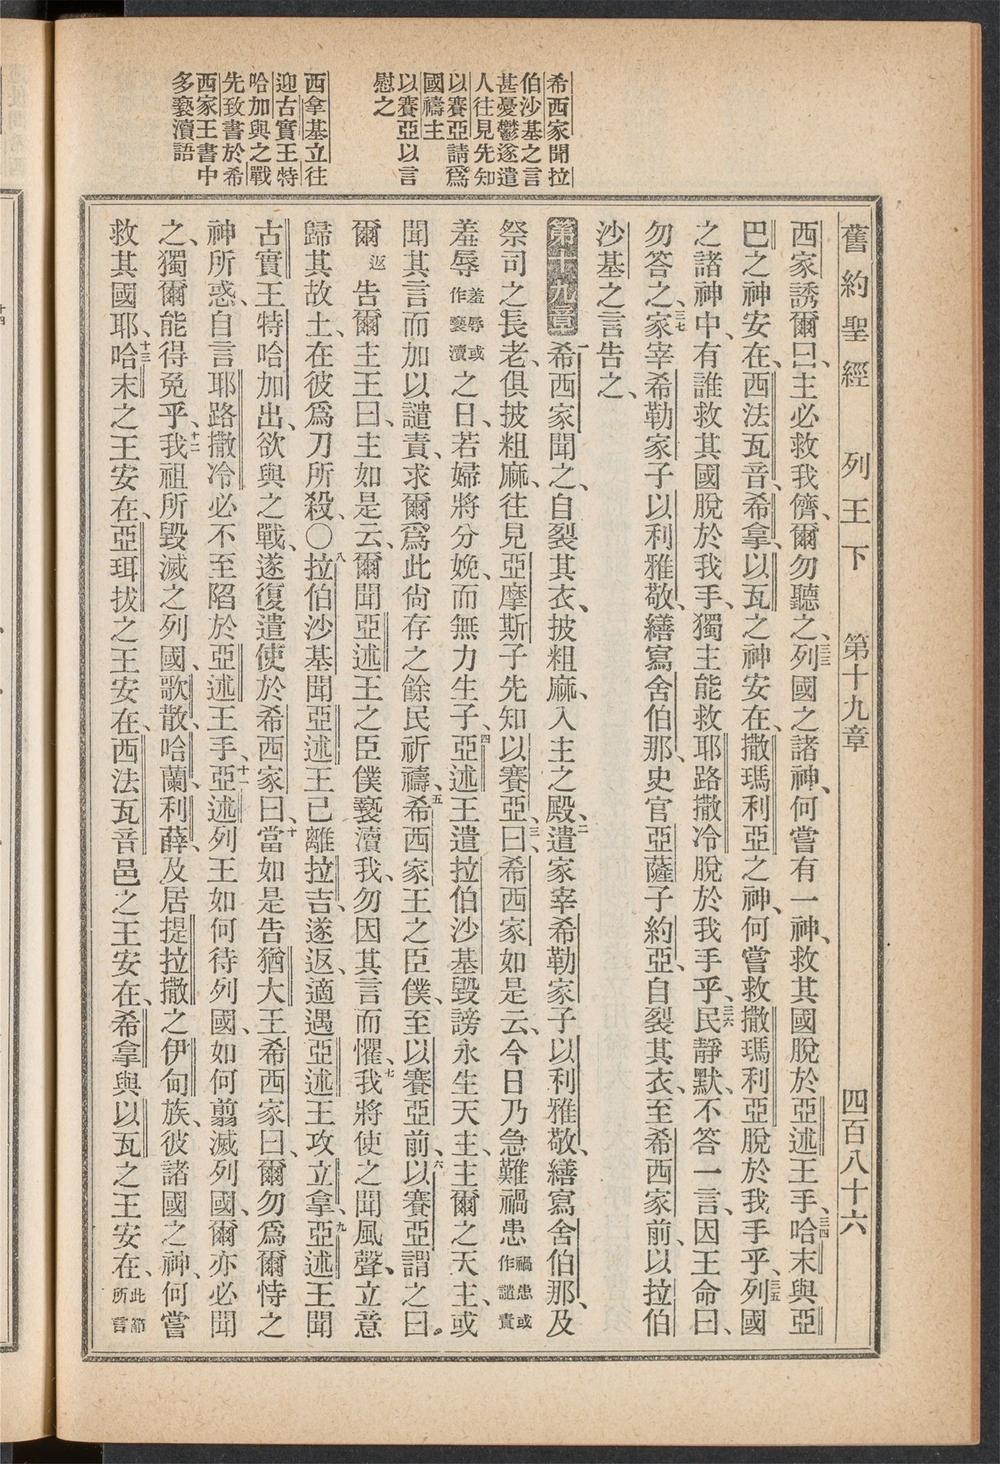 希西家聞拉
伯沙基之言
甚憂鬱遂遣
人往見先知
以賽亞請爲
國禱主
以賽亞以言
慰之
西拿基立往
迎古實王特
哈加與之戰
先致書於希
西家王書中
多褻瀆語
舊約聖經 列王下 第十九章 四百八十六
西家誘爾曰、主必救我儕、爾勿聽之、三三列國之諸神、何嘗有一神、救其國脫於亞述王手、三四哈末與亞
巴之神安在、西法瓦音、希拿、以瓦之神安在、撒瑪利亞之神、何嘗救撒瑪利亞脫於我手乎、三五列國
之諸神中、有誰救其國脫於我手、獨主能救耶路撒冷脫於我手乎、三六民靜默、不答一言、因王命曰、
勿答之、三七家宰希勒家子以利雅敬、繕寫舍伯那、史官亞薩子約亞、自裂其衣、至希西家前、以拉伯
沙基之言告之、
第十九章 一希西家聞之、自裂其衣、披粗麻、入主之殿、二遣家宰希勒家子以利雅敬、繕寫舍伯那、及
祭司之長老、俱披粗麻、往見亞摩斯子先知以賽亞、三曰、希西家如是云、今日乃急難禍患禍患或作譴責
羞辱羞辱或作褻瀆之日、若婦將分娩、而無力生子、四亞述王遣拉伯沙基毀謗永生天主、主爾之天主、或
聞其言而加以譴責、求爾爲此尙存之餘民祈禱、五希西家王之臣僕、至以賽亞前、六以賽亞謂之曰。
爾返告爾主王曰、主如是云、爾聞亞述王之臣僕褻瀆我、勿因其言而懼、七我將使之聞風聲、立意
歸其故土、在彼爲刀所殺、〇八拉伯沙基聞亞述王已離拉吉、遂返、適遇亞述王攻立拿、九亞述王聞
古實王特哈加出、欲與之戰、遂復遣使於希西家曰、十當如是告猶大王希西家曰、爾勿爲爾恃之
神所惑、自言耶路撒冷必不至陷於亞述王手、十一亞述列王如何待列國、如何翦滅列國、爾亦必聞
之、獨爾能得免乎、十二我祖所毀滅之列國、歌散、哈蘭、利薛、及居提拉撒之伊甸族、彼諸國之神、何嘗
救其國耶、十三哈末之王安在、亞珥拔之王安在、西法瓦音邑之王安在、希拿與以瓦之王安在、此節所言